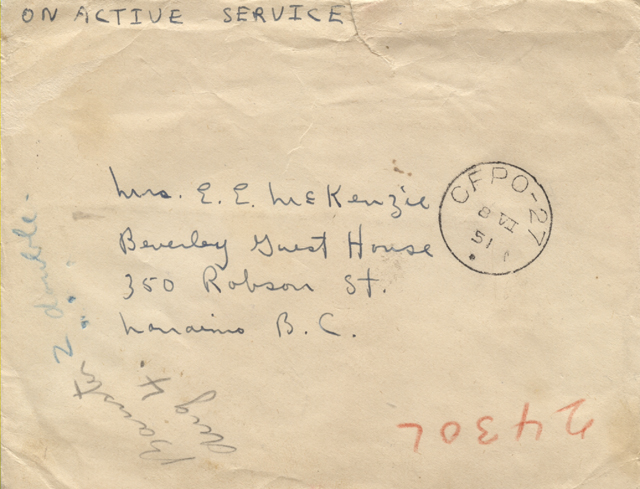 ON ACTIVE SERVICE
Mrs. E. E. McKenzie
Beverley Guest House
350 Robson St.
Nanaimo B.C.
CFPO-27
8 VI
51
2 double.
Aug 4.
24302